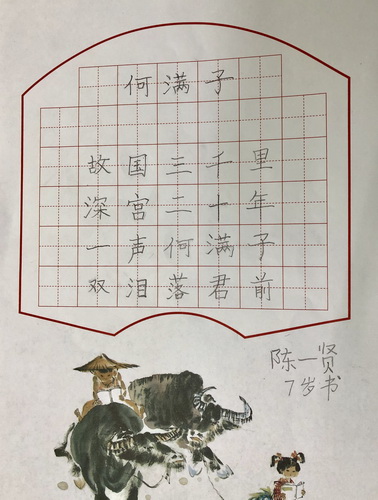 何满子
故国三千里
深宫二十年
一声何满子
双泪落君前
陈一贤
7岁书